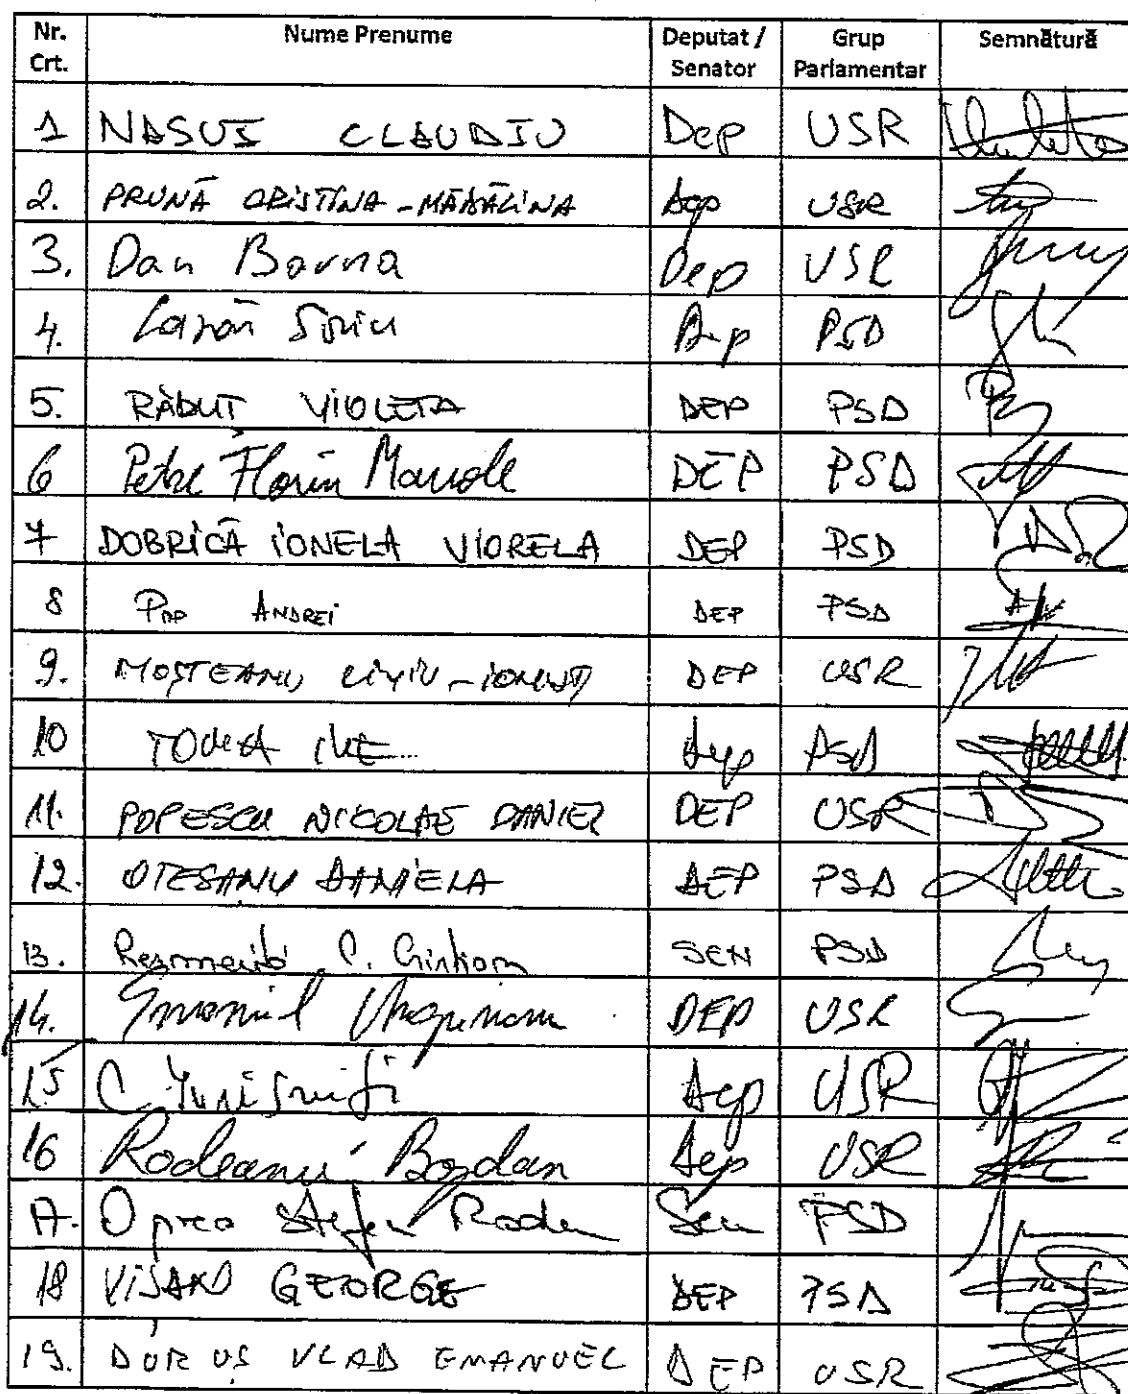 Nr. Crt. Nume Prenume Deputat / Senator Grup Parlamentar Semnătură
1 NASUI CLAUDIU Dep USR
2. PRUNĂ CRISTINA-MĂDĂLINA Dep USR
3. Dan Barna Dep USR
4. Lazăr Sorin Dep PSD
5. RĂDUȚ VIOLETA DEP PSD
6 Petre Florin Manole DEP PSD
7 DOBRICĂ IONELA VIORELA DEP PSD
8 Pop Andrei DEP PSD
9. MOȘTEANU LIVIU-IONUȚ DEP USR
10 TOMA ILIE Dep PSD
11. POPESCU NICOLAE DANIEL DEP USR
12. OTEȘANU DANIELA DEP PSD
13. C. SEN PSD
14. Emanuel Ungureanu DEP USR
15 C. Dep USR
16 Rodeanu Bogdan Dep USR
17. Oprea Ștefan Radu Sen PSD
18 VIȘAN GEORGE DEP PSD
19. DURUȘ VLAD EMANUEL DEP USR